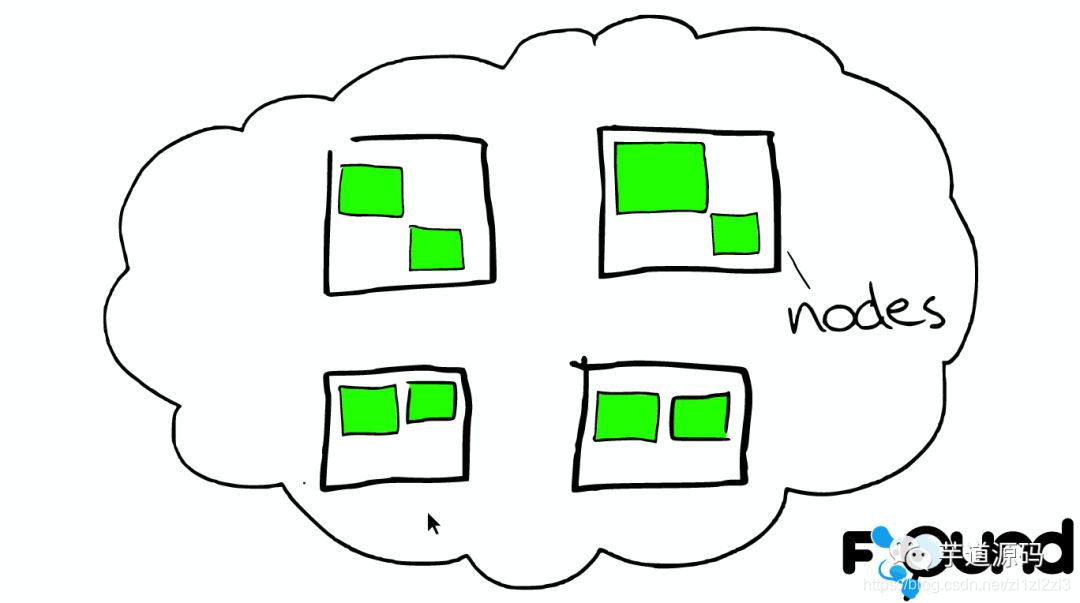 nodes
Found
芋道源码
https://blog.csdn.net/zl1zl2zl3